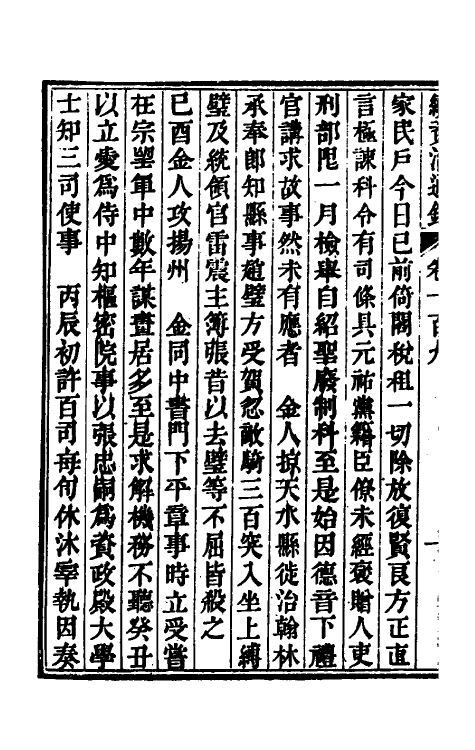 續資治通鑑 卷一百九
家民戶今日已前倚閣稅租一切除放復賢良方正直
言極諫科令有司條具元祐黨籍臣僚未經褒贈人吏
刑部限一月檢舉自紹聖廢制科至是始因德音下禮
官講求故事然未有應者 金人掠天水縣徙治翰林
承奉郎知縣事趙璧方受賀忽敵騎三百突入坐上縛
璧及統領官雷震主簿張昔以去璧等不屈皆殺之
己酉金人攻揚州 金同中書門下平章事時立受嘗
在宗翰軍中數年謀畫居多至是求解機務不聽癸丑
以立愛爲侍中知樞密院事以張忠嗣爲資政殿大學
士知三司使事 丙辰初許百司每旬休沐宰執因奏